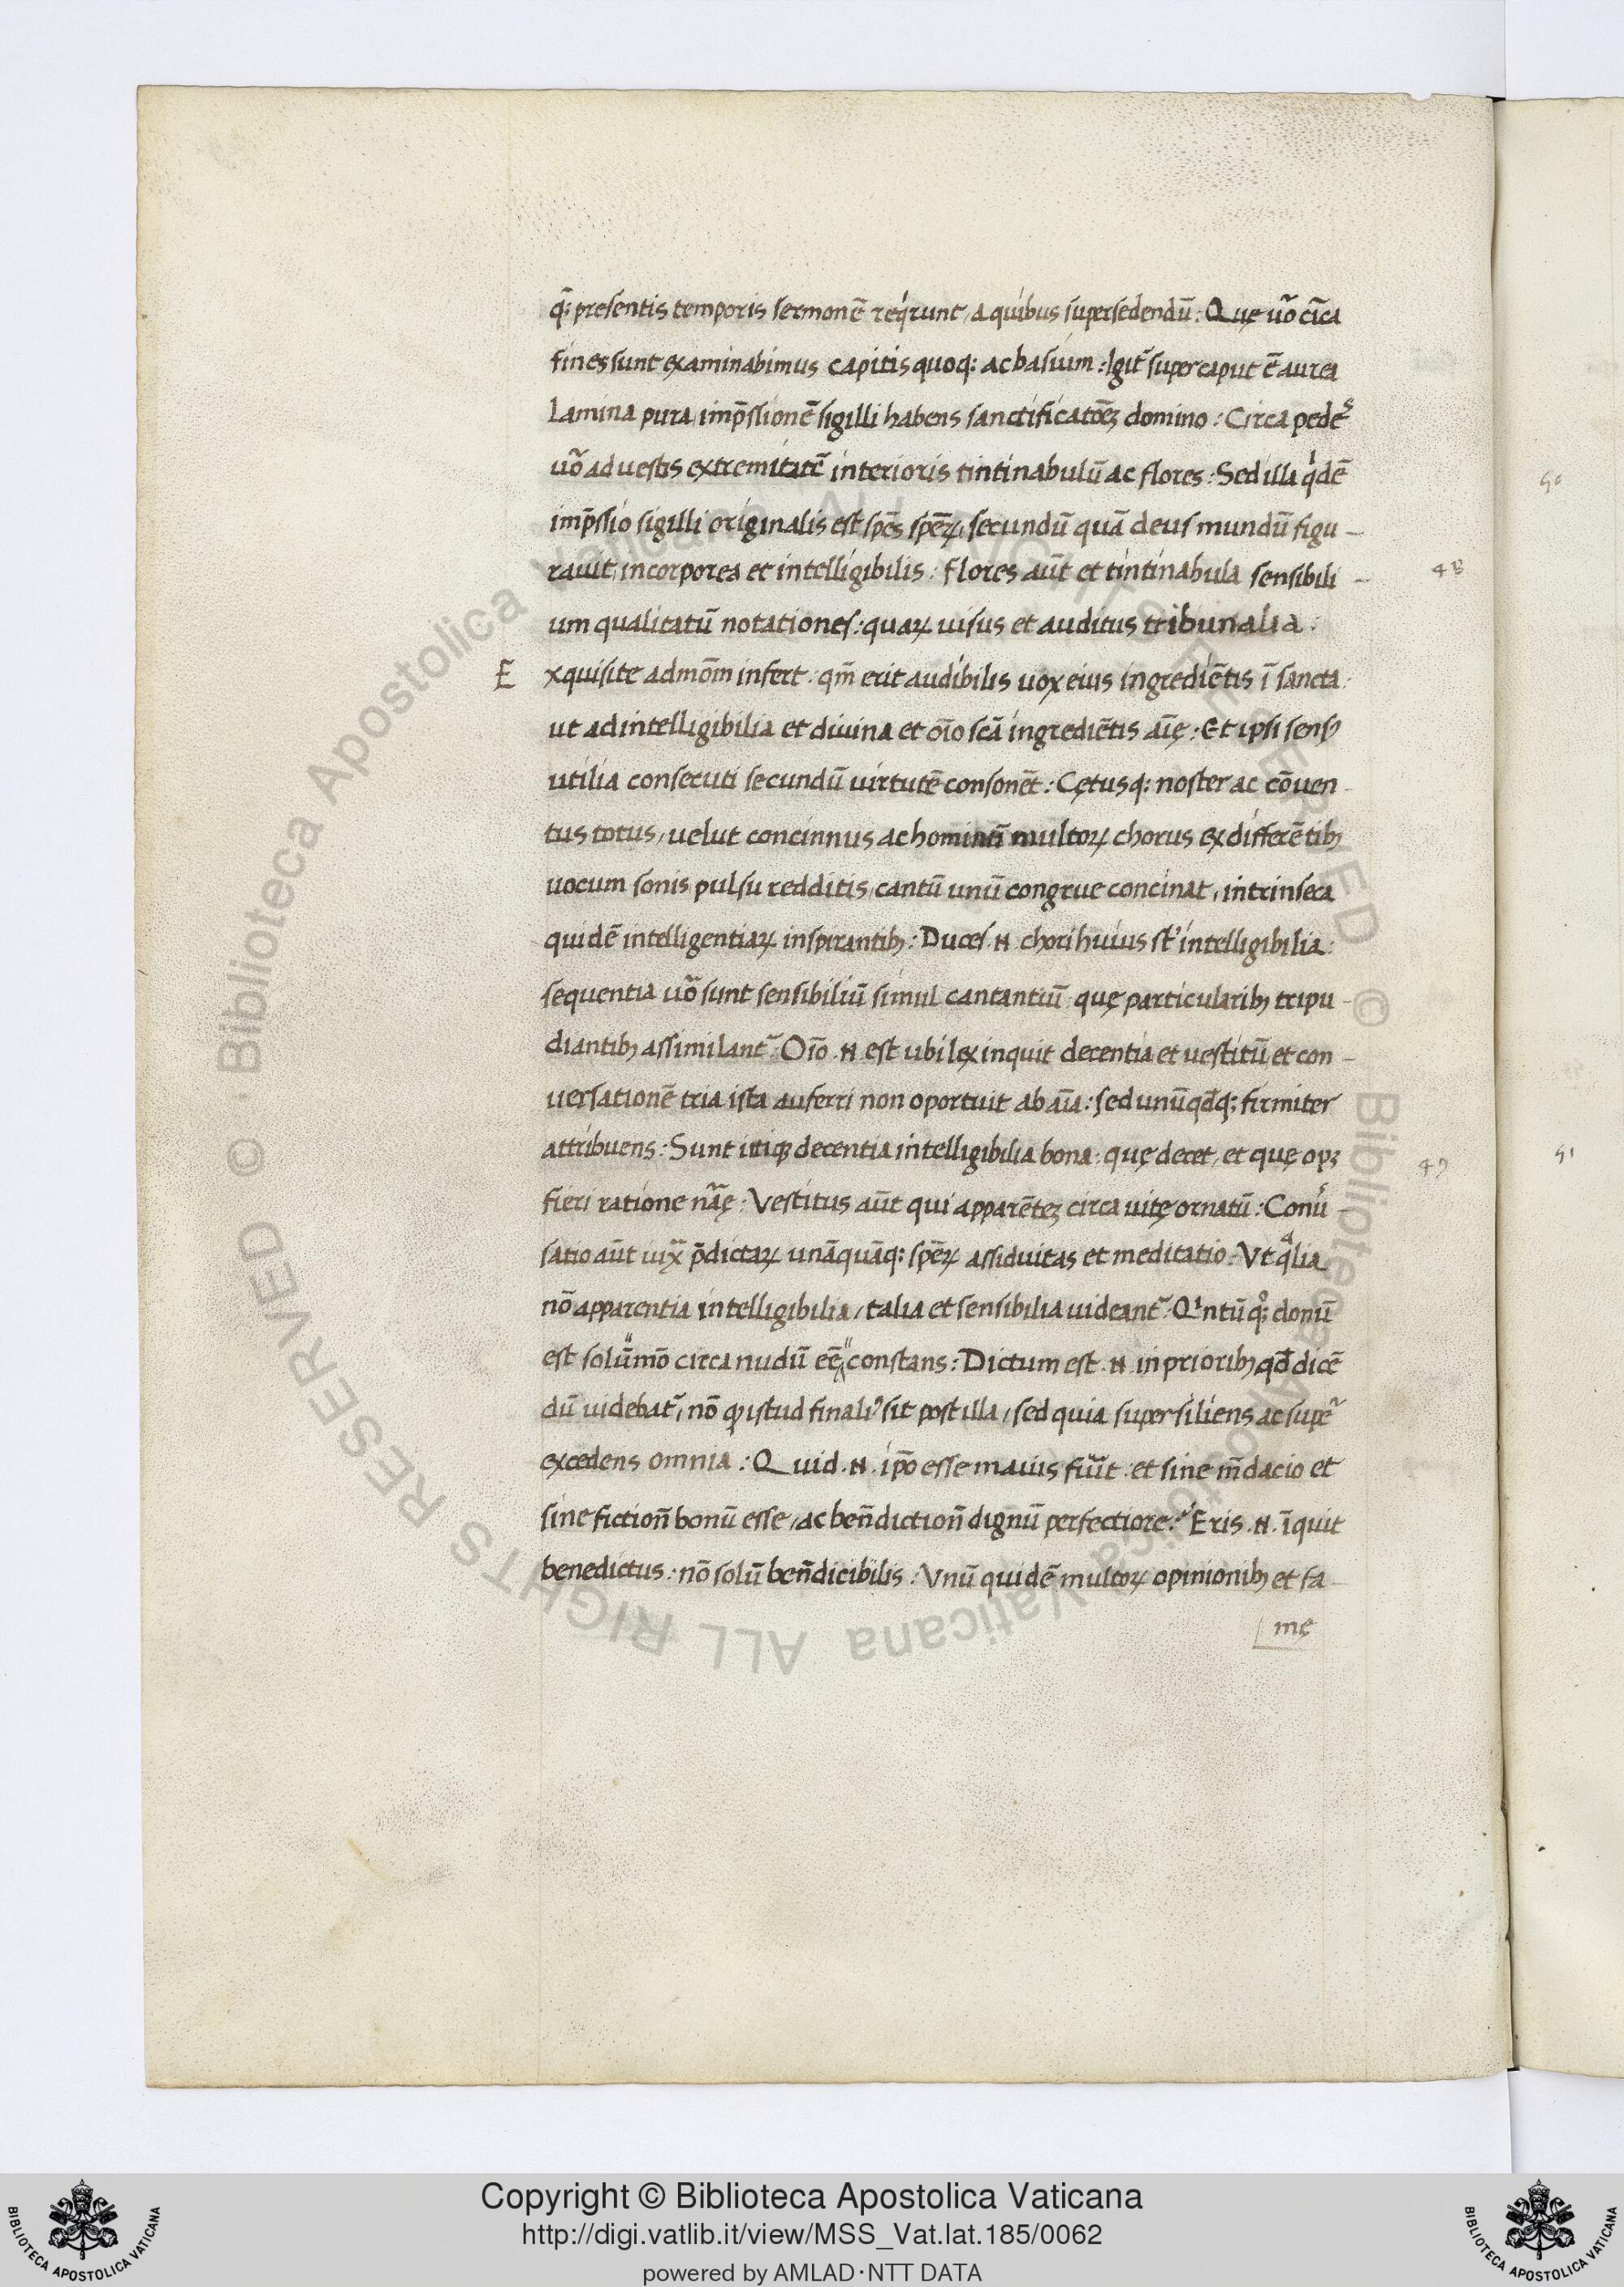 q̃; presentis temporis sermonē reqͥrunt, a quibus supersedendū: Quę uo᷉ cīca
fines sunt examinabimus capitis quoq; ac basium: Igit᷉ super caput ē aurea
lamina pura, imp̄ssionē sigilli habens sanctificatōeʒ domino: Circa pedeˢ
uo᷉ ad uestis extremitatē interioris tintinabulū ac flores: Sed illa qͥdē
imp̄ssio sigilli originalis est sp̄es sp̄eꝝ, secundū quā deus mundū figu-
rauit, incorporea et intelligibilis: flores aūt et tintinabula sensibili-
um qualitatū notationes: quaꝝ uisus et auditus tribunalia:
E xquisite admōm infert: qm̄ erit audibilis uox eius ingrediētis ī sancta:
ut ad intelligibilia et diuina et oīo scā ingrediētis aīę: Et ipsi sensꝰ
utilia consecuti secundū uirtutē consonēt: Cętusq; noster ac cōuen-
tus totus, uelut concinnus ac hominū multoꝝ chorus ex differētibꝫ
uocum sonis, pulsu redditis, cantū unū congrue concinat, intrinseca
quidē intelligentiaꝝ inspirantibꝫ: Duces .n. chori huius st᷉ intelligibilia:
sequentia uo᷉ sunt sensibiliū simul cantantiū, quę particularibꝫ tripu-
diantibꝫ assimilant᷉: Oīo .n. est ubi lex inquit decentia et uestitū et con-
uersationē tria ista auferri non oportuit ab aīa: sed unūqd̄q; firmiter
attribuens: Sunt itiqꝫ decentia intelligibilia bona: quę decet, et quę opꝫ
fieri ratione nr̄ę: Vestitus aūt qui apparētez circa uitę ornatū: Conuͥ-
satio aūt iux᷉ p̄dictaꝝ unāquāq; sp̄eꝝ assiduitas et meditatio: Vt qͣlia
nō apparentia intelligibilia, talia et sensibilia uideant᷉: Qͥntū q°; donū
est solū mō circa nudū eē constans: Dictum est .n. in prioribꝫ qd̄ dicē
dū uidebat᷉, nō qꝫ istud finaliꝰ sit post illa, sed quia supersiliens ac supe᷉
excedens omnia: Quid .n. ip̄o esse maius fuit: et sine mn̄dacio et
sine fictioñ bonū esse, ac beñdictioñ dignū perfectiore: Eris .n. īquit
benedictus: nō solū beñdicibilis: Vnū quidē multoꝝ opinionibꝫ et fa-
mę
48
49
50
51
Copyright © Biblioteca Apostolica Vaticana
http://digi.vatlib.it/view/MSS_Vat.lat.185/0062
powered by AMLAD·NTT DATA
BIBLIOTECA APOSTOLICA VATICANA
BIBLIOTECA APOSTOLICA VATICANA
© Biblioteca Apostolica Vaticana ALL RIGHTS RESERVED © Biblioteca Apostolica Vaticana ALL RIGHTS RESERVED